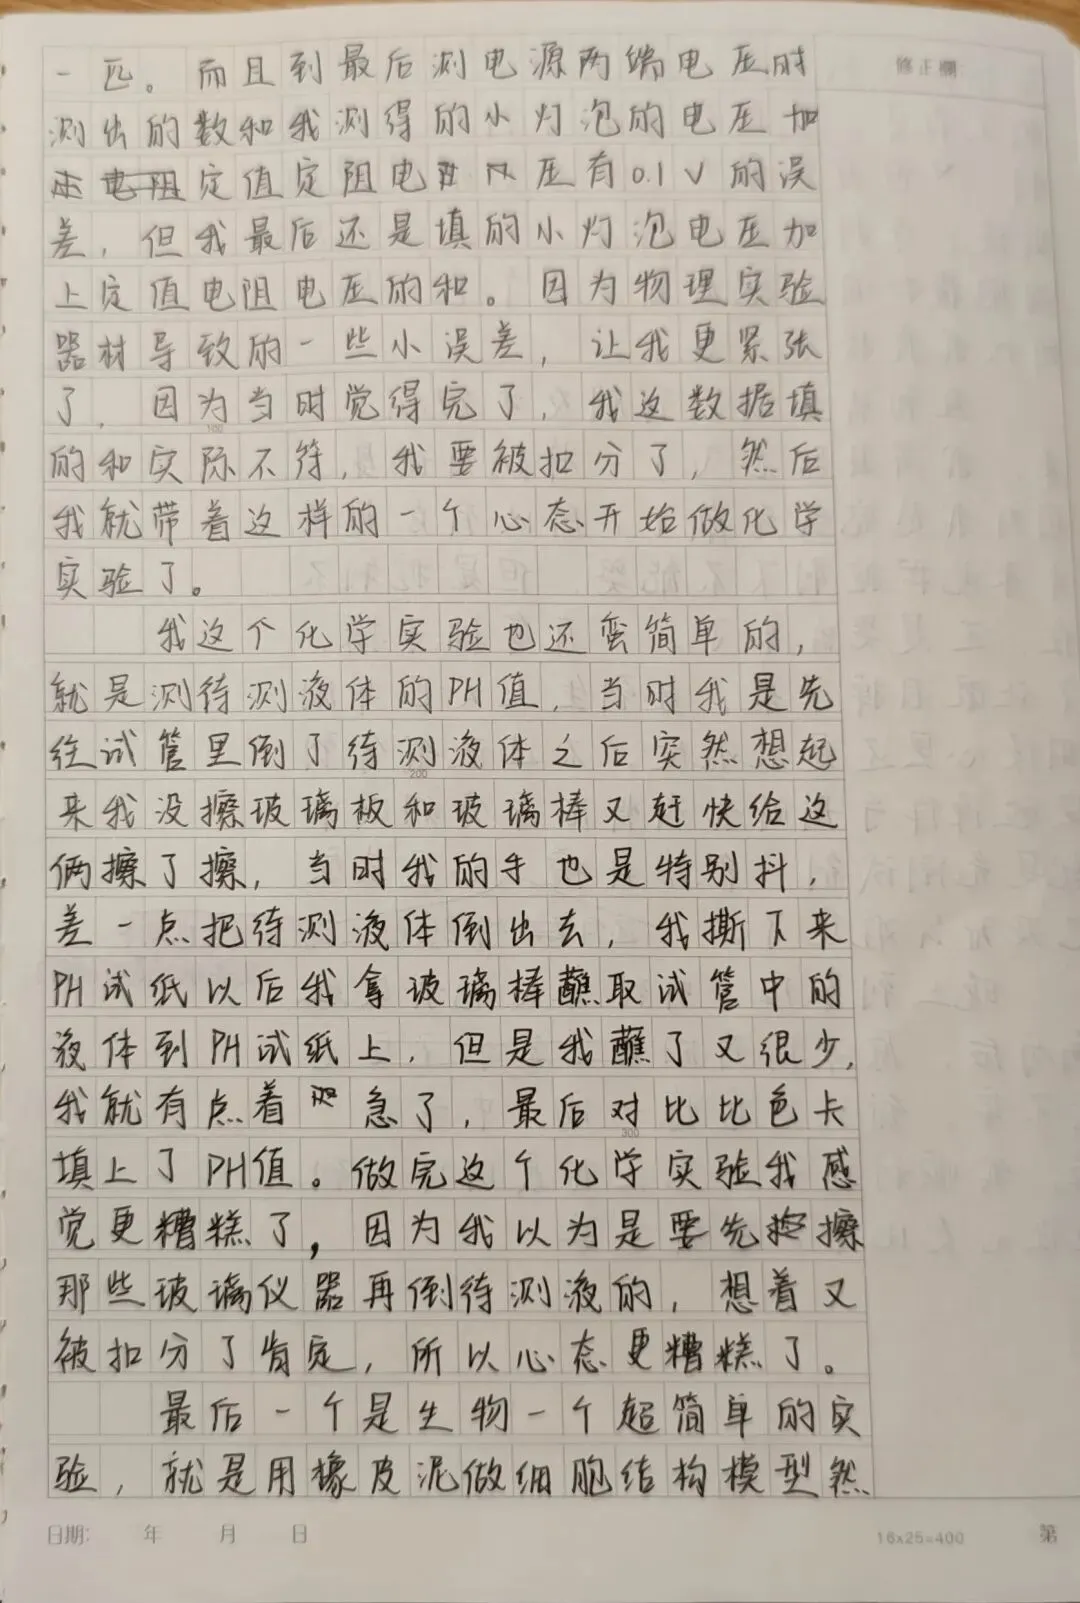 一匹。而且到最后测电源两端电压时
修正欄
测出的数和我测得的小灯泡的电压加
定值定阻电压有0.1V的误
差，但我最后还是填的小灯泡电压加
上定值电阻电压的和。因为物理实验
器材导致的一些小误差，让我更紧张
了，因为当时觉得完了，我这数据填
100
的和实际不符，我要被扣分了，然后
我就带着这样的一个心态开始做化学
实验了。
我这个化学实验也还蛮简单的，
就是测待测液体的PH值，当时我是先
往试管里倒了待测液体之后突然想起
200
来我没擦玻璃板和玻璃棒又赶快给这
俩擦了擦，当时我的手也是特别抖，
差一点把待测液体倒出去，我撕下来
PH试纸以后我拿玻璃棒蘸取试管中的
液体到PH试纸上，但是我蘸了又很少，
我就有点着急了，最后对比比色卡
300
填上了PH值。做完这个化学实验我感
觉更糟糕了，因为我以为是要先擦
那些玻璃仪器再倒待测液的，想着又
被扣分了肯定，所以心态更糟糕了。
最后一个是生物一个超简单的实
验，就是用橡皮泥做细胞结构模型然
日期: 年 月 日
16x25=400
第